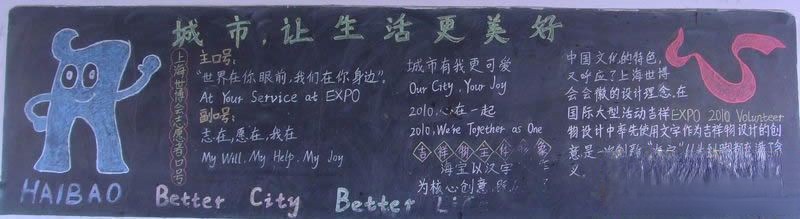 城市,让生活更美好
HAIBAO
上海世博会志愿者口号
主口号:
"世界在你眼前,我们在你身边".
At Your Service at EXPO
副口号:
志在,愿在,我在
My Will. My Help. My Joy
城市有我更可爱
Our City, Your Joy
2010,心在一起
2010, We're Together as One
吉祥物主体形象
海宝以汉字
为核心创意
中国文化的特色,
又呼应了上海世博
会会徽的设计理念.在
国际大型活动吉祥
物设计中率先使用文字作为吉祥物设计的创
意是一次创新
义.
EXPO 2010 Volunteer
Better City Better